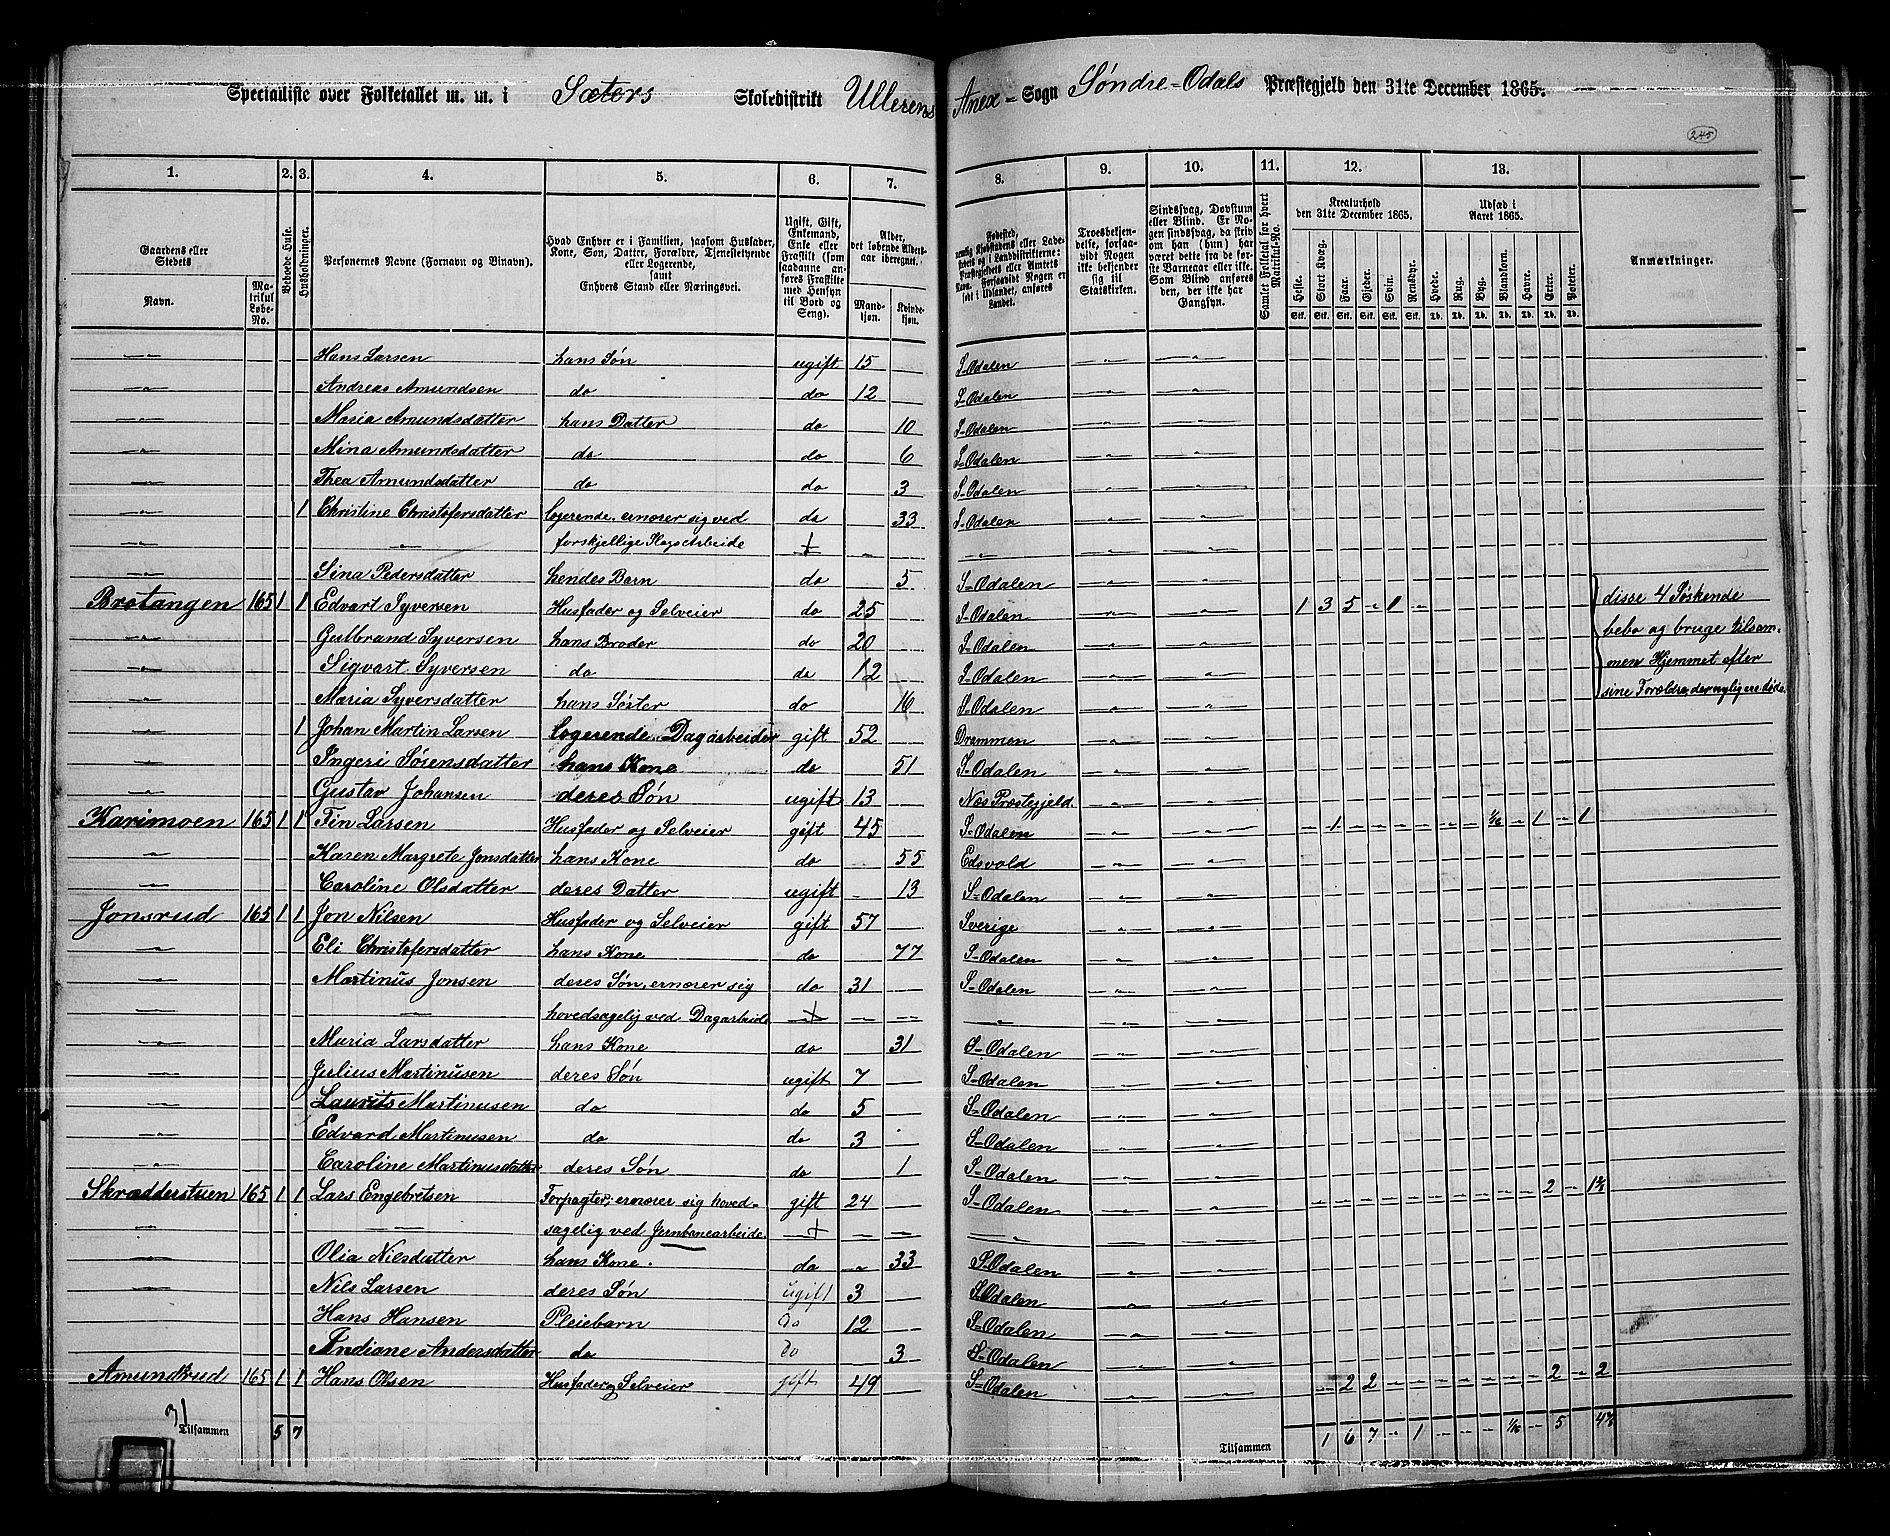 Specialliste over Folketallet m. m. i Sæters Skoledistrikt Ullerens Anex-Sogn Søndre-Odals Præstegjeld den 31te December 1865.
245
1. 2. 3. 4. 5. 6. 7. 8. 9. 10. 11. 12. 13.
Gaardens eller Stedets
Navn. Matrikul Løbe-No.
Beboede Huse.
Husholdninger.
Personernes Navne (Fornavn og Binavn).
Hvad Enhver er i Familien, saasom Husfader, Kone, Søn, Datter, Forældre, Tjenestetyende eller Logerende, samt Enhvers Stand eller Næringsvei.
Ugift, Gift, Enkemand, Enke eller Fraskilt (som saadanne anføres Fraskilte med Hensyn til Bord og Seng).
Alder, det løbende Aldersaar iberegnet.
Mandkjøn. Kvindekjøn.
Fødested,
Troesbekjendelse, forsaavidt Nogen ikke bekjender sig til Statskirken.
Sindssvag, Døvstum eller Blind. Er Nogen sindssvag, da skriv om han (hun) har været dette fra de første Barneaar eller ikke. Som Blind anføres den, der ikke har Gangsyn.
Samlet Folketal for hvert Matrikul-No.
Kreaturhold den 31te December 1865.
Heste. Stort Kvæg. Faar. Gjeder. Svin. Rensdyr.
Udsæd i Aaret 1865.
Hvede. Rug. Byg. Blandkorn. Havre. Erter. Poteter.
Anmærkninger.
Stk. Stk. Stk. Stk. Stk. Stk. Td. Td. Td. Td. Td. Td. Td.
Hans Larsen hans Søn ugift 15 S-Odalen
Andreas Amundsen do do 12 S-Odalen
Maria Amundsdatter hans Datter do 10 S-Odalen
Mina Amundsdatter do do 6 S-Odalen
Thea Amundsdatter do do 3 S-Odalen
1 Christine Christofersdatter logerende, ernærer sig ved do 33 S-Odalen
forskjellige Slags Arbeide
Sina Pedersdatter hendes Barn do 5 S-Odalen
Brotangen 165 1 1 Edvart Syversen Husfader og Selveier do 25 S-Odalen 1 3 5 - 1 - disse 4 Søskende
Gulbrand Syversen hans Broder do 20 S-Odalen bebo og bruge tilsam-
Sigvart Syversen do do 12 S-Odalen men Hjemmet efter
Maria Syversdatter hans Søster do 16 S-Odalen sine Forældre, der nylig ere døde.
1 Johan Martin Larsen logerende Dagarbeider gift 52 Drammen
Ingeri Sørensdatter hans Kone do 51 S-Odalen
Gustav Johansen deres Søn ugift 13 Næs Præstegjeld
Karimoen 165 1 1 Fin Larsen Husfader og Selveier gift 45 S-Odalen - 1 - - - - - - - 1/16 - 1 - 1
Karen Margrete Jonsdatter hans Kone do 55 Edsvold
Caroline Olsdatter deres Datter ugift 13 S-Odalen
Jonsrud 165 1 1 Jon Nilsen Husfader og Selveier gift 57 Sverige
Eli Christofersdatter hans Kone do 77 S-Odalen
Martinus Jonsen deres Søn, ernærer sig do 31 S-Odalen
hovedsagelig ved Dagarbeide
Maria Larsdatter hans Kone do 31 S-Odalen
Julius Martinusen deres Søn ugift 7 S-Odalen
Laurits Martinusen do do 5 S-Odalen
Edvard Martinusen do do 3 S-Odalen
Caroline Martinusdatter deres Søn do 1 S-Odalen
Skrædderstuen 165 1 1 Lars Engebretsen Forpagter, ernærer sig hoved- gift 24 S-Odalen 2
sagelig ved Jernbanearbeide.
Olia Nilsdatter hans Kone. do 33 S-Odalen
Nils Larsen deres Søn ugift 3 S-Odalen
Hans Hansen Pleiebarn Do 12 S-Odalen
Andiane Andersdatter do Do 3 S-Odalen
Amundkrud 165 1 1 Hans Olsen Husfader og Selveier gift 49 S-Odalen - 2 2 - - - - - - - 2 - 2
31 Tilsammen 5 7 Tilsammen 1 6 7 - 1 - - - 1/16 - 5